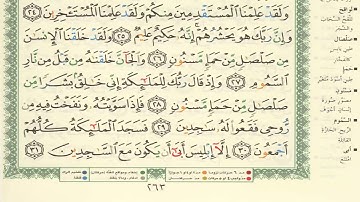 وَلَقَدْ عَلِمْنَا الْمُسْتَقْدِمِينَ مِنكُمْ وَلَقَدْ عَلِمْنَا الْمُسْتَـْٔخِرِينَ ٢٤
وَإِنَّ رَبَّكَ هُوَ يَحْشُرُهُمْ إِنَّهُ حَكِيمٌ عَلِيمٌ ٢٥ وَلَقَدْ خَلَقْنَا الْإِنسَٰنَ
مِن صَلْصَٰلٍ مِّنْ حَمَإٍ مَّسْنُونٍ ٢٦ وَالْجَانَّ خَلَقْنَٰهُ مِن قَبْلُ مِن نَّارِ
السَّمُومِ ٢٧ وَإِذْ قَالَ رَبُّكَ لِلْمَلَٰٓئِكَةِ إِنِّي خَٰلِقٌ بَشَرًا مِّن
صَلْصَٰلٍ مِّنْ حَمَإٍ مَّسْنُونٍ ٢٨ فَإِذَا سَوَّيْتُهُ وَنَفَخْتُ فِيهِ مِن
رُّوحِي فَقَعُوا لَهُ سَٰجِدِينَ ٢٩ فَسَجَدَ الْمَلَٰٓئِكَةُ كُلُّهُمْ
أَجْمَعُونَ ٣٠ إِلَّا إِبْلِيسَ أَبَىٰ أَن يَكُونَ مَعَ السَّٰجِدِينَ ٣١
٢٦٣